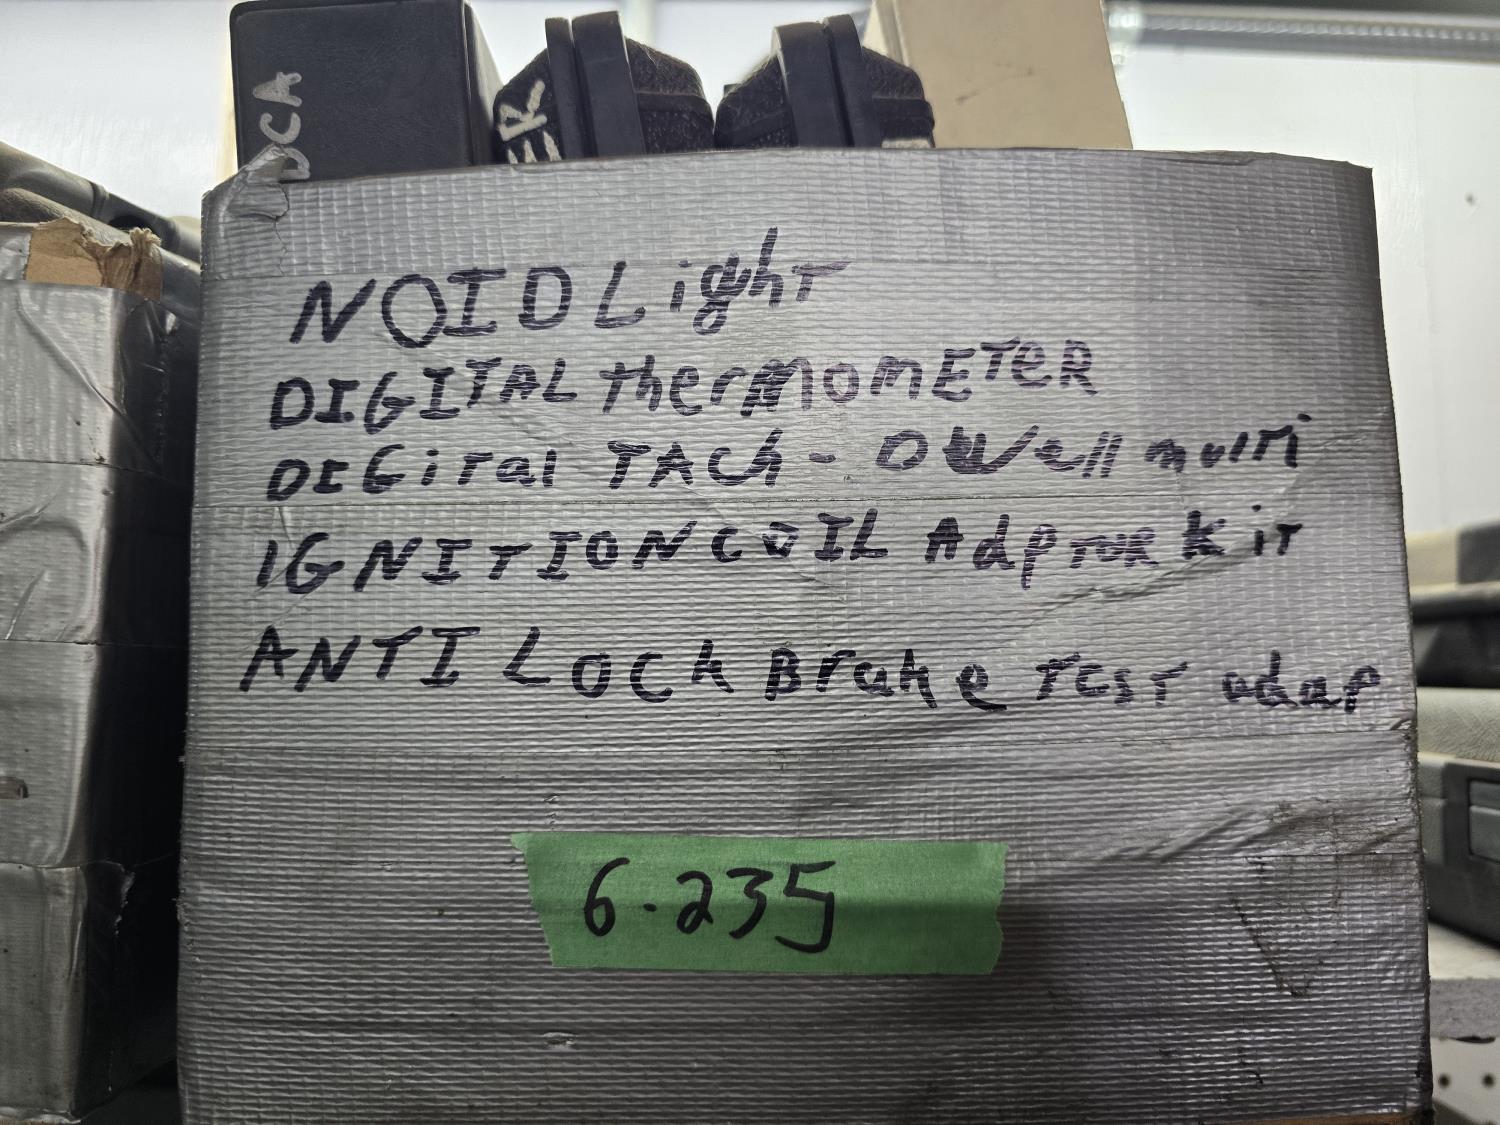 DCA
ER
NOID Light
DIGITAL thermOMETER
DIGital TACh - DWell multi
IGNITION COIL AdpTOR kit
ANTI LOCk Brake TEST adap
6-235